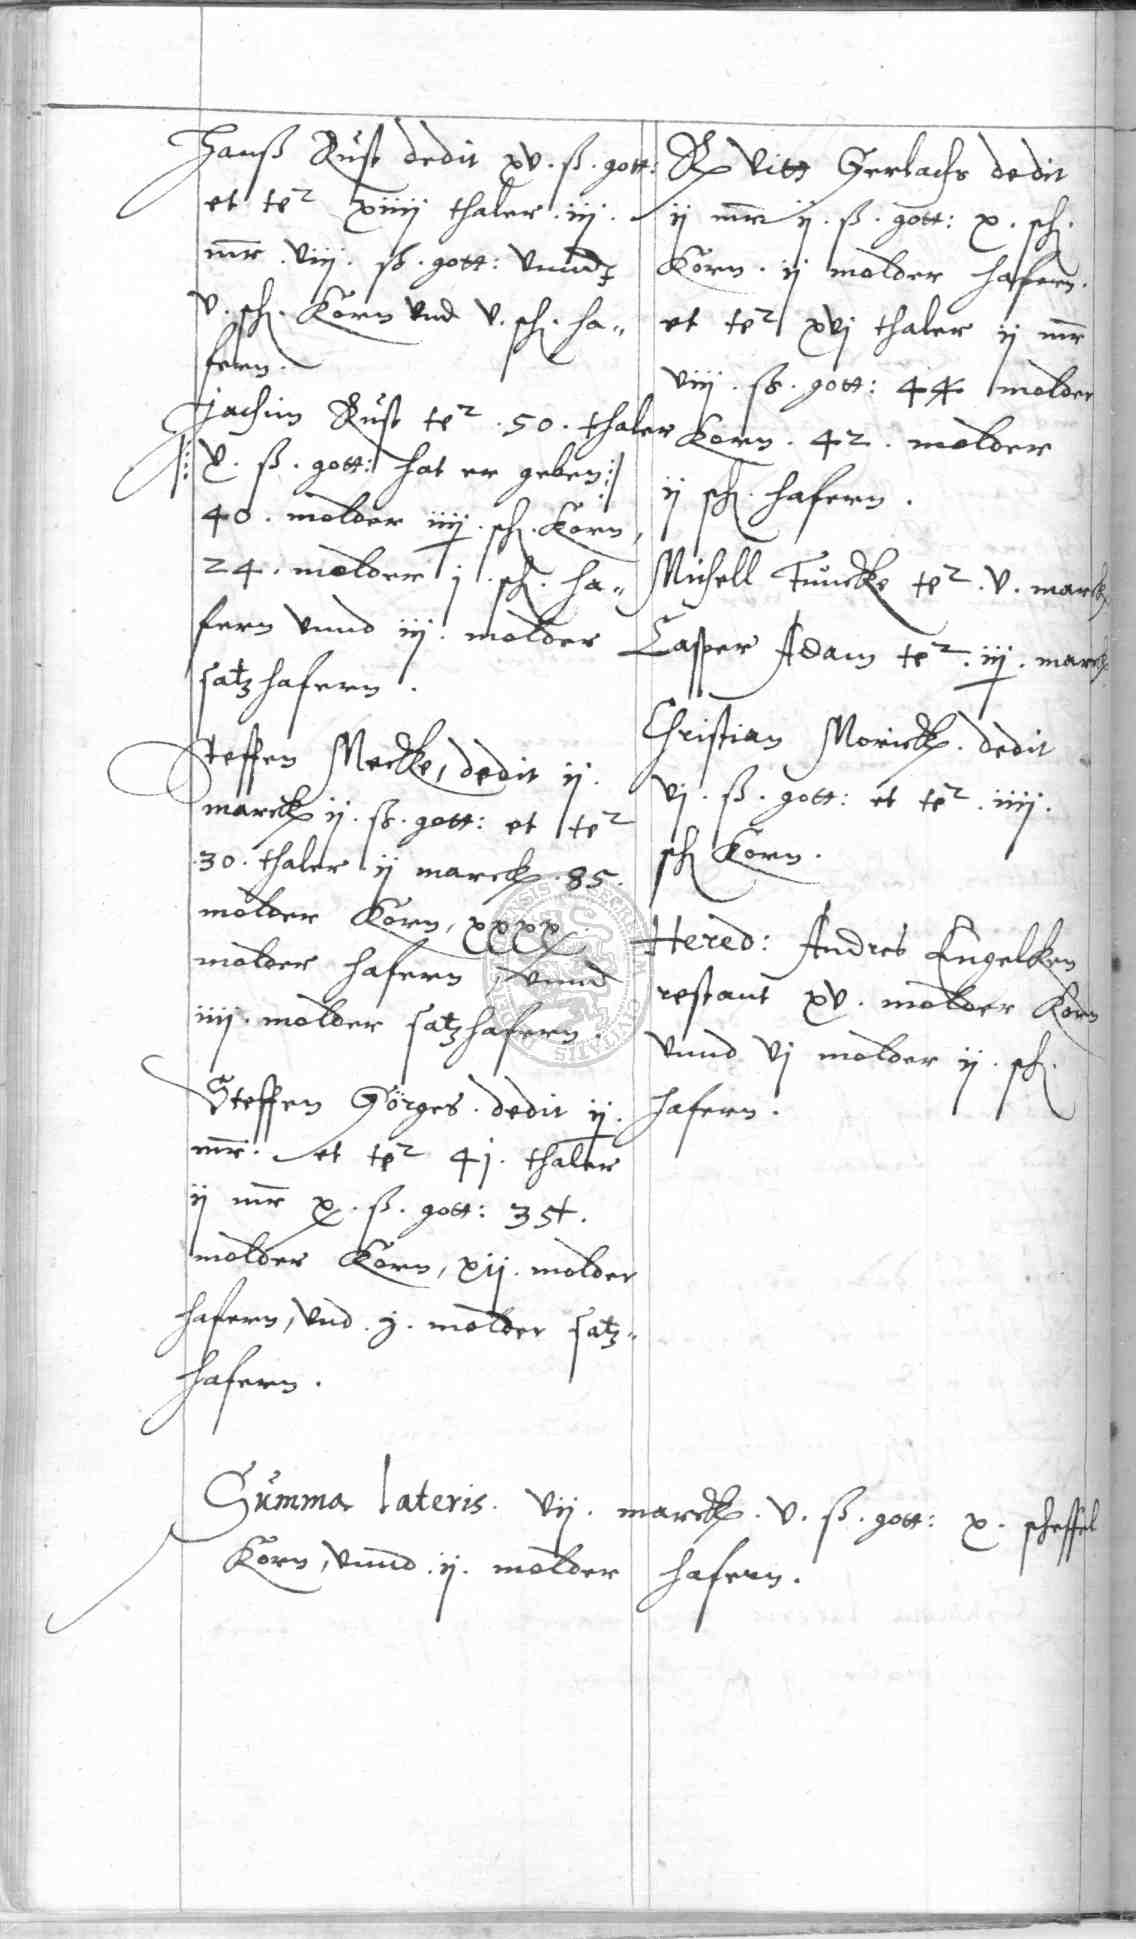 Hanß Rust dedit xv. ß. gott:
et te² xiiij thaler. iij.
mr̄. viij. ß. gott: vnnd
v. sch. Korn vnd v. sch. ha„
fern.
Jachim Rust te² .50. thaler
/: v. ß. gott: hat er geben :/
40. molder iiij. sch. Korn,
24. molder j. sch. ha„
fern vnnd iij. molder
satzhafern.
Steffen Mecke, dedit ij.
marck ij. ß. gott: et te²
.30. thaler ij marck. 85.
molder Korn, xxxx
molder hafern, vnnd
iiij. molder satzhafern.
Steffen Görges. dedit ij.
mr̄. et te² 4j. thaler
ij mr̄ x. ß. gott: 35.
molder Korn, xij. molder
hafern, vnd. j. molder satz„
hafern.
Vitt Gerlachs dedit
ij mr̄ ij. ß. gott: x. sch.
Korn. ij molder hafern.
et te² xvj thaler ij mr̄
viij. ß. gott: 44 molder
Korn. 42. molder
ij sch. hafern.
Michell Funcke te². v. marck
Casper Adam te². iij. marck
Christian Morick. dedit
vj. ß. gott: et te². iiij.
sch Korn.
Hered: Andres Engelken
restant xv. molder Korn
vnnd vj molder ij. sch.
hafern.
Summa lateris. vij. marck. v. ß. gott: x. scheffel
Korn, vnnd. ij. molder hafern.